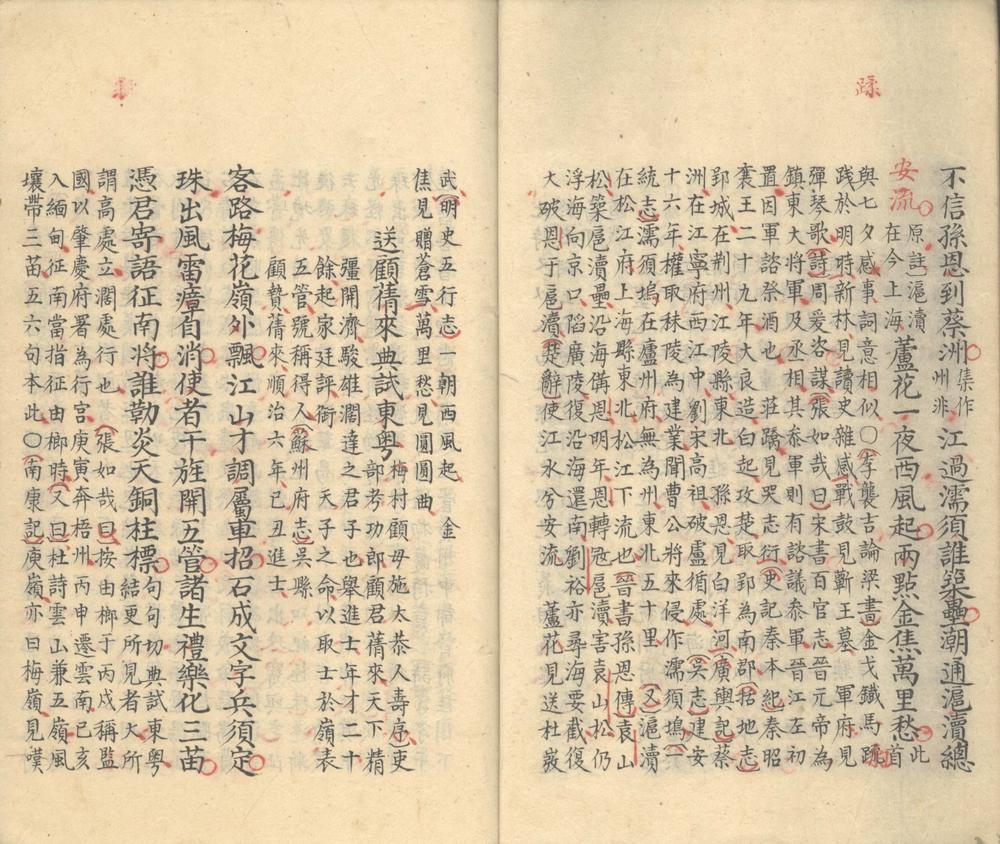 不信孫恩到蔡洲集作州非江過濡須誰築壘潮通滬瀆總
安流原註滬瀆在今上海蘆花一夜西風起兩點金焦萬里愁此首
與七夕感事詞意相似〇李襲吉論梁書金戈鐵馬蹂
踐於明時新林見讀史雜感戰鼓見蘄王墓軍府見
彈琴歌詩周爰咨謀張如哉曰宋書百官志晉元帝為
鎮東大將軍及丞相其參軍則有諮議參軍晉江左初
置因軍諮祭酒也莊蹻見哭志衍史記秦本紀秦昭
襄王二十九年大良造白起攻楚取郢為南郡括地志
郢城在荆州江陵縣東北孫恩見白洋河廣輿記蔡
洲在江寧府西江中劉宋高祖破盧循處吳志建安
十六年權取秣陵為建業聞曹公將來侵作濡須塢一
統志濡須塢在廬州府無為州東北五十里又滬瀆
在松江府上海縣東北松江下流也晉書孫恩傳袁山
松築扈瀆壘沿海備恩明年恩轉寇扈瀆害袁山松仍
浮海向京口陷廣陵復沿海還南劉裕亦尋海要截復
大破恩于扈瀆楚辭使江水兮安流蘆花見送杜弢
武明史五行志一朝西風起金
焦見贈蒼雪萬里愁見圓圓曲
送顧蒨來典試東粤梅村顧母施太恭人壽序吏部考功郎顧君蒨來天下精
彊開濟駿雄濶達之君子也舉進士年才二十
餘起家廷評銜天子之命以取士於嶺表
五管號稱得人蘇州府志吳縣
顧贄蒨來順治六年己丑進士
客路梅花嶺外飄江山才調屬車招石成文字兵須定
珠出風雷瘴自消使者干旌開五管諸生禮樂化三苗
憑君寄語征南將誰勒炎天銅柱標句句切典試東粤結更所見者大所
謂高處立濶處行也張如哉曰按由榔于丙戌稱監
國以肇慶府署為行宮庚寅奔梧州丙申遷雲南己亥
入緬甸征南當指征由榔時又曰杜詩雲山兼五嶺風
壤帶三苗五六句本此〇南康記庾嶺亦曰梅嶺見嘆
蹂